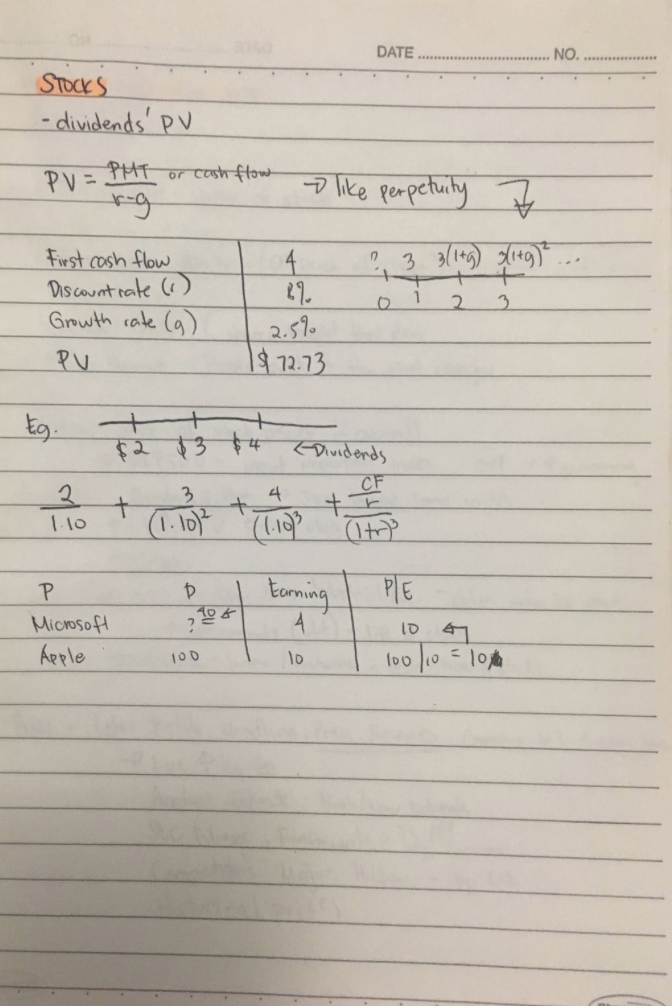 DATE ........................ NO. ................
STOCKS
- dividends' PV
PV = PMT or cash flow / r-g → like perpetuity
First cash flow | 4
Discount rate (r) | 8%
Growth rate (g) | 2.5%
PV | $ 72.73
? 3 3(1+g) 3(1+g)² ...
0 1 2 3
Eg. $2 $3 $4 ← Dividends
2/1.10 + 3/(1.10)² + 4/(1.10)³ + (CF/r)/(1+r)³
P D | Earning | P/E
Microsoft ? 40 | 4 | 10
Apple 100 | 10 | 100/10 = 10